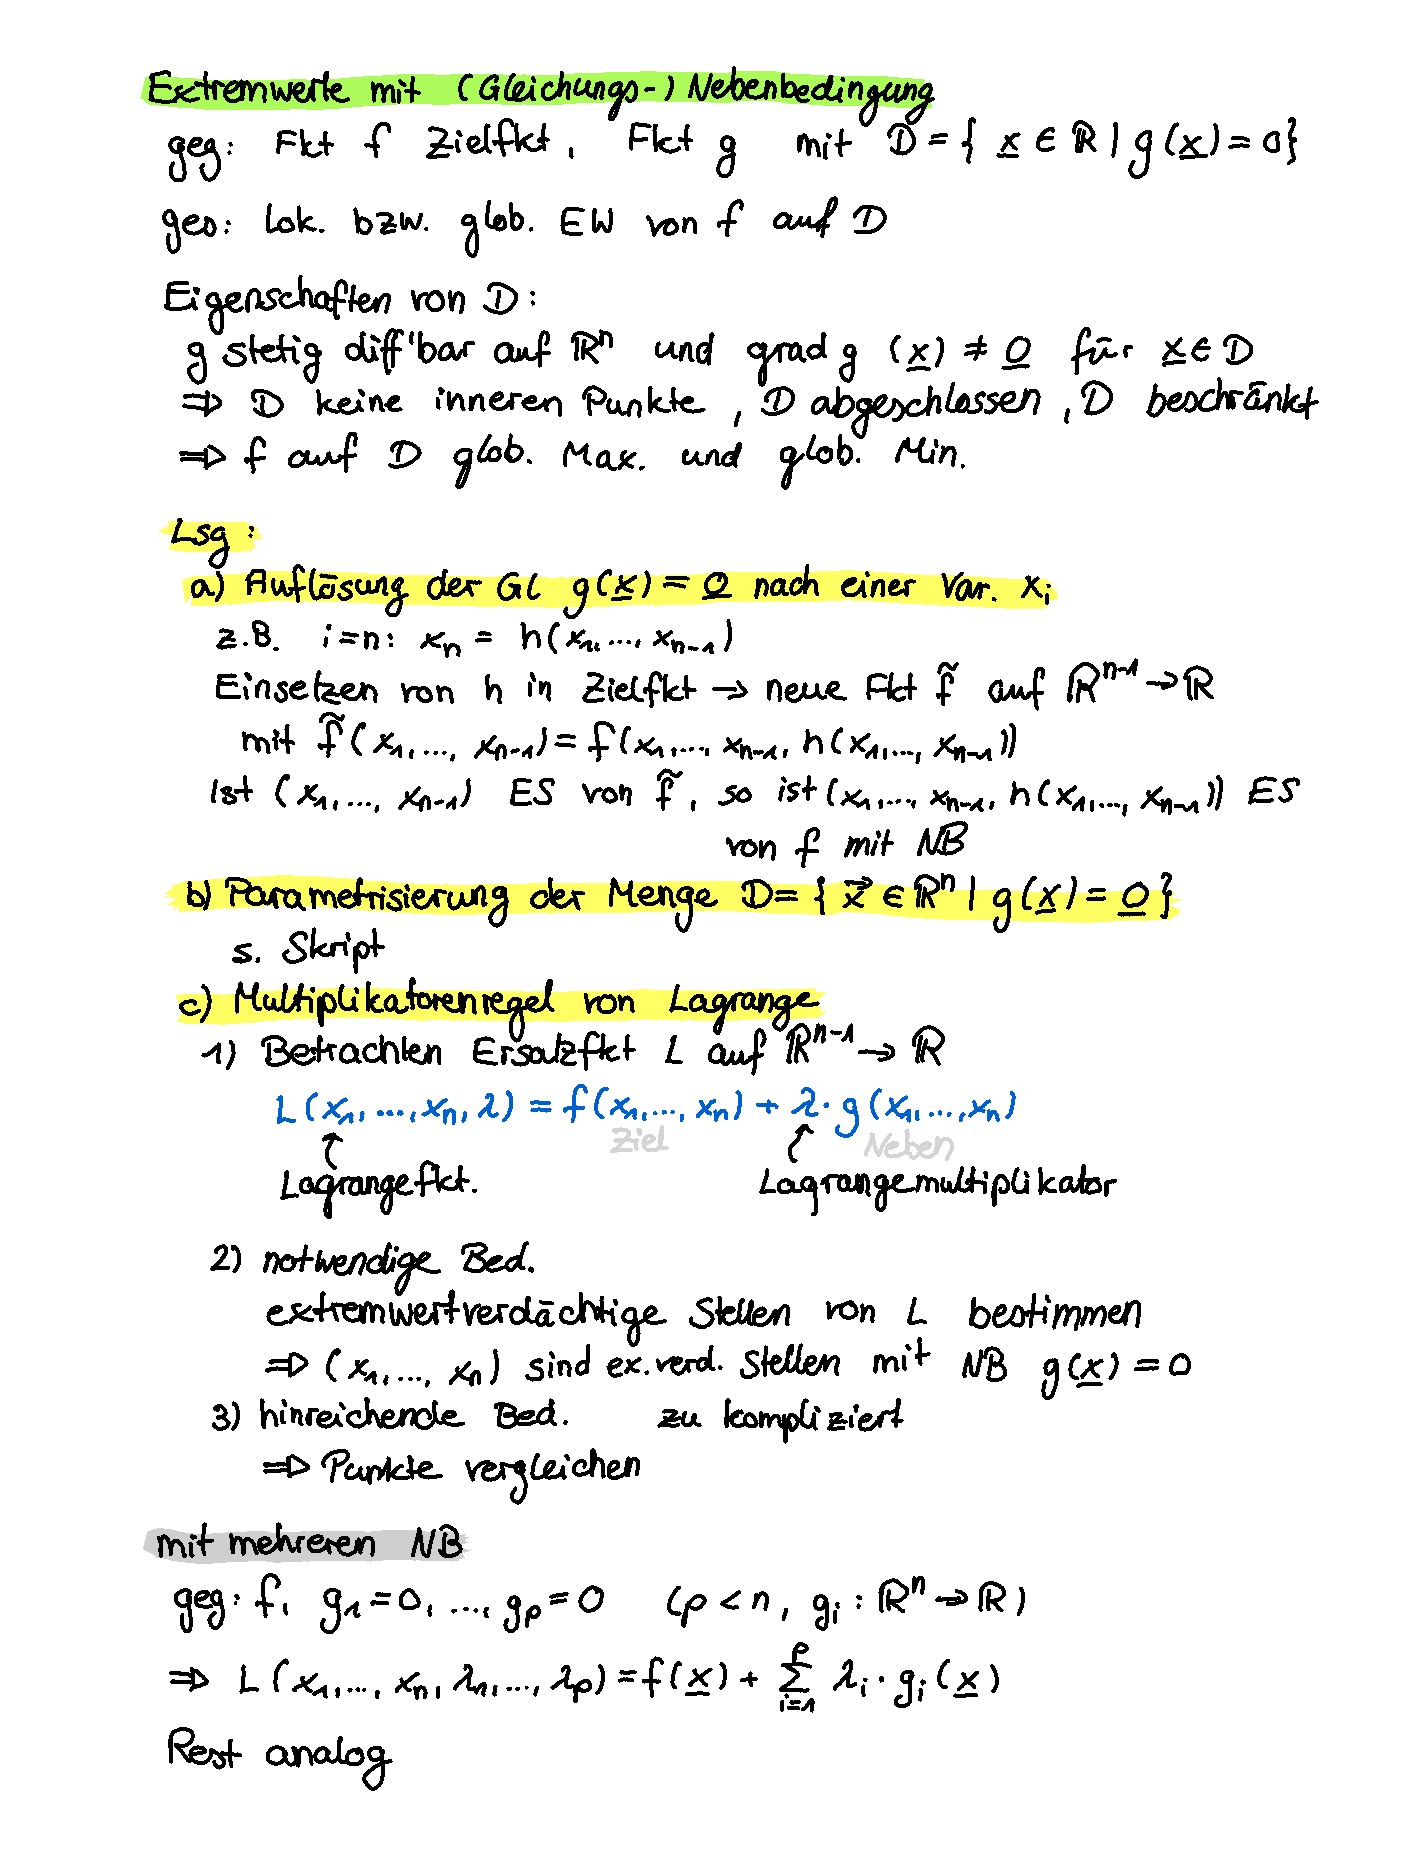 Extremwerte mit (Gleichungs-) Nebenbedingung
geg: Fkt f Zielfkt, Fkt g mit D = { x̲ ∈ ℝ | g(x̲) = 0}
ges: lok. bzw. glob. EW von f auf D
Eigenschaften von D:
g stetig diff'bar auf ℝⁿ und grad g (x̲) ≠ 0̲ für x̲ ∈ D
⇒ D keine inneren Punkte, D abgeschlossen, D beschränkt
⇒ f auf D glob. Max. und glob. Min.
Lsg:
a) Auflösung der Gl g(x̲) = 0̲ nach einer Var. xᵢ
z.B. i=n: xₙ = h(x₁,..., xₙ₋₁)
Einsetzen von h in Zielfkt → neue Fkt f̃ auf ℝⁿ⁻¹ → ℝ
mit f̃(x₁,..., xₙ₋₁) = f(x₁,..., xₙ₋₁, h(x₁,..., xₙ₋₁))
Ist (x₁,..., xₙ₋₁) ES von f̃, so ist (x₁,..., xₙ₋₁, h(x₁,..., xₙ₋₁)) ES
von f mit NB
b) Parametrisierung der Menge D = { x⃗ ∈ ℝⁿ | g(x̲) = 0̲ }
s. Skript
c) Multiplikatorenregel von Lagrange
1) Betrachten Ersatzfkt L auf ℝⁿ⁻¹ → ℝ
L(x₁,...,xₙ, λ) = f(x₁,..., xₙ) + λ · g(x₁,...,xₙ)
Ziel Neben
Lagrangefkt. Lagrangemultiplikator
2) notwendige Bed.
extremwertverdächtige Stellen von L bestimmen
⇒ (x₁,..., xₙ) sind ex.verd. Stellen mit NB g(x̲) = 0
3) hinreichende Bed. zu kompliziert
⇒ Punkte vergleichen
mit mehreren NB
geg: f, g₁=0, ..., gₚ=0 (p < n, gᵢ : ℝⁿ → ℝ)
⇒ L(x₁,..., xₙ, λₙ,..., λₚ) = f(x̲) + ∑ᵢ₌₁ᵖ λᵢ · gᵢ(x̲)
Rest analog